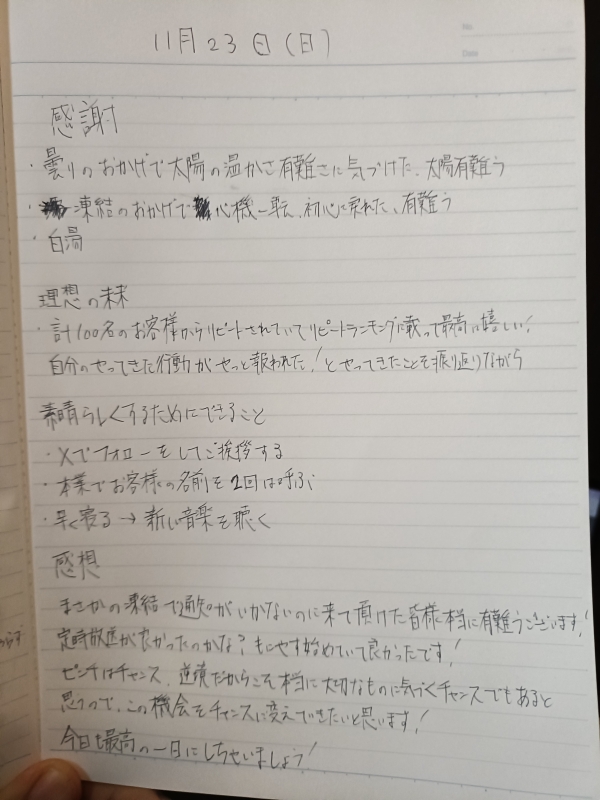 11月23日(日)
感謝
・曇りのおかげで太陽の温かさ有難さに気づけた、太陽有難う
・凍結のおかげで心機一転、初心に戻れた、有難う
・白湯
理想の未来
・計100名のお客様からリピートされていてリピートランキングに載って最高に嬉しい!
自分のやってきた行動がやっと報われた!とやってきたことを振り返りながら
素晴らしくするためにできること
・Xでフォローをしてご挨拶する
・本業でお客様の名前を2回は呼ぶ
・早く寝る→新しい音楽を聴く
感想
まさかの凍結で通知がいかないのに来て頂けた皆様本当に有難うございます!
定時放送が良かったのかな?もしやす始めていて良かったです!
ピンチはチャンス、逆境だからこそ本当に大切なものに気づくチャンスでもあると
思うので、この機会をチャンスに変えできたいと思います!
今日も最高の一日にしちゃいましょう!